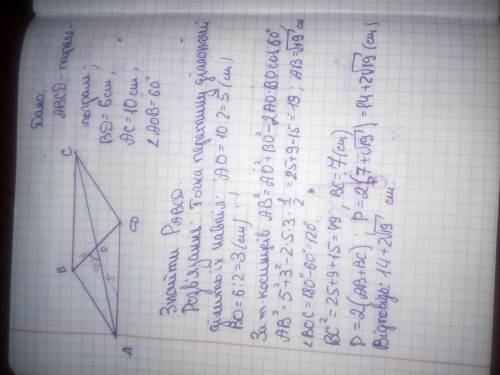 Дано:
ABCD - парале-
лограм;
BD = 6 см,
AC = 10 см,
∠AOB = 60°
B
C
A
D
O
5
Знайти P ABCD.
Розв'язання: Точка перетину діагоналей
ділить їх навпіл. AO = 10:2 = 5 (см)
BO = 6:2 = 3 (см)
За т. косинусів AB² = AO² + BO² - 2AO·BO cos 60°
AB² = 5² + 3² - 2·5·3·1/2 = 25+9-15 = 19; AB = √19 см
∠BOC = 180° - 60° = 120°
BC² = 25+9+15 = 49; BC = 7 (см)
P = 2(AB+BC); P = 2(7+√19) = 14+2√19 (см)
Відповідь: 14+2√19 см.